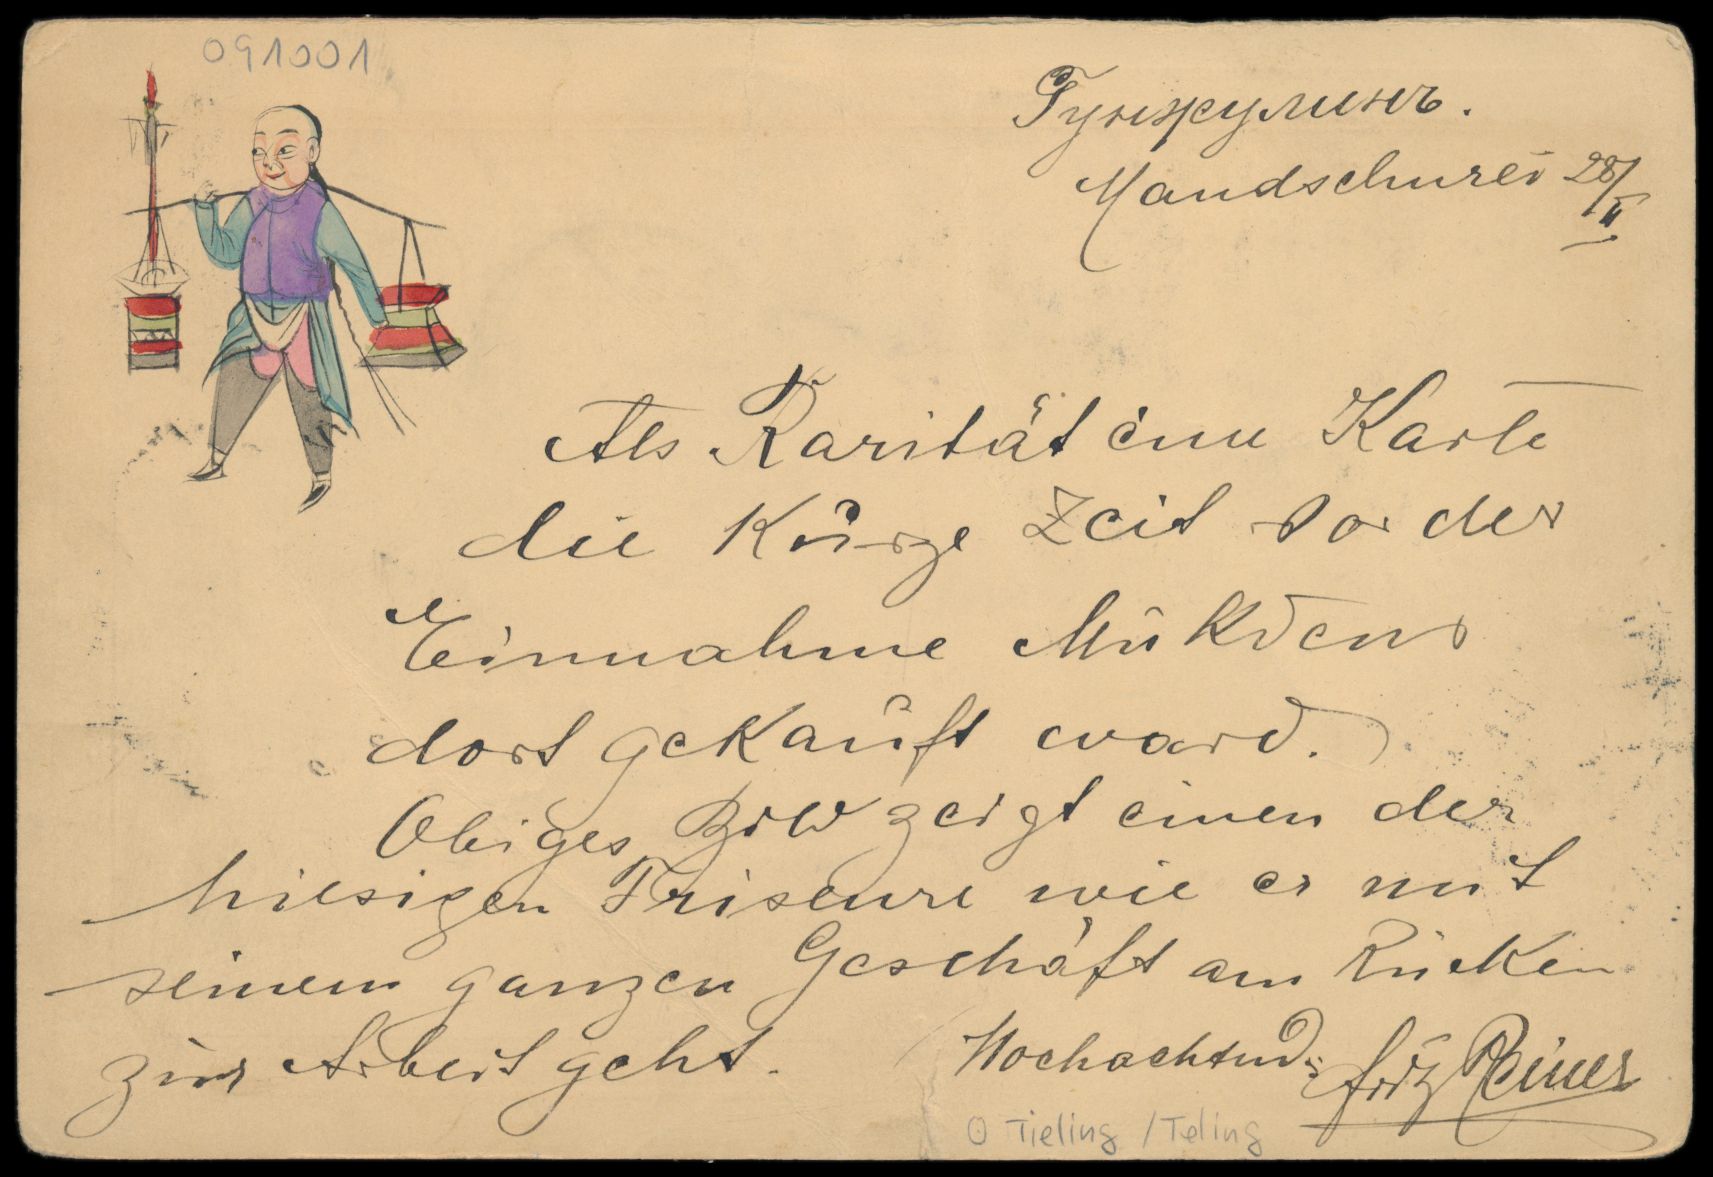 091001
Гунжулинъ.
Mandschurei 28/II
Als Rarität eine Karte
die kurze Zeit vor der
Einnahme Mukdens
dort gekauft ward.
Obiges Bild zeigt einen der
hiesigen Friseure wie er mit
seinem ganzen Geschäft am Rücken
zur Arbeit geht.
Hochachtend: Fritz Reiner
O Tieling / Teling